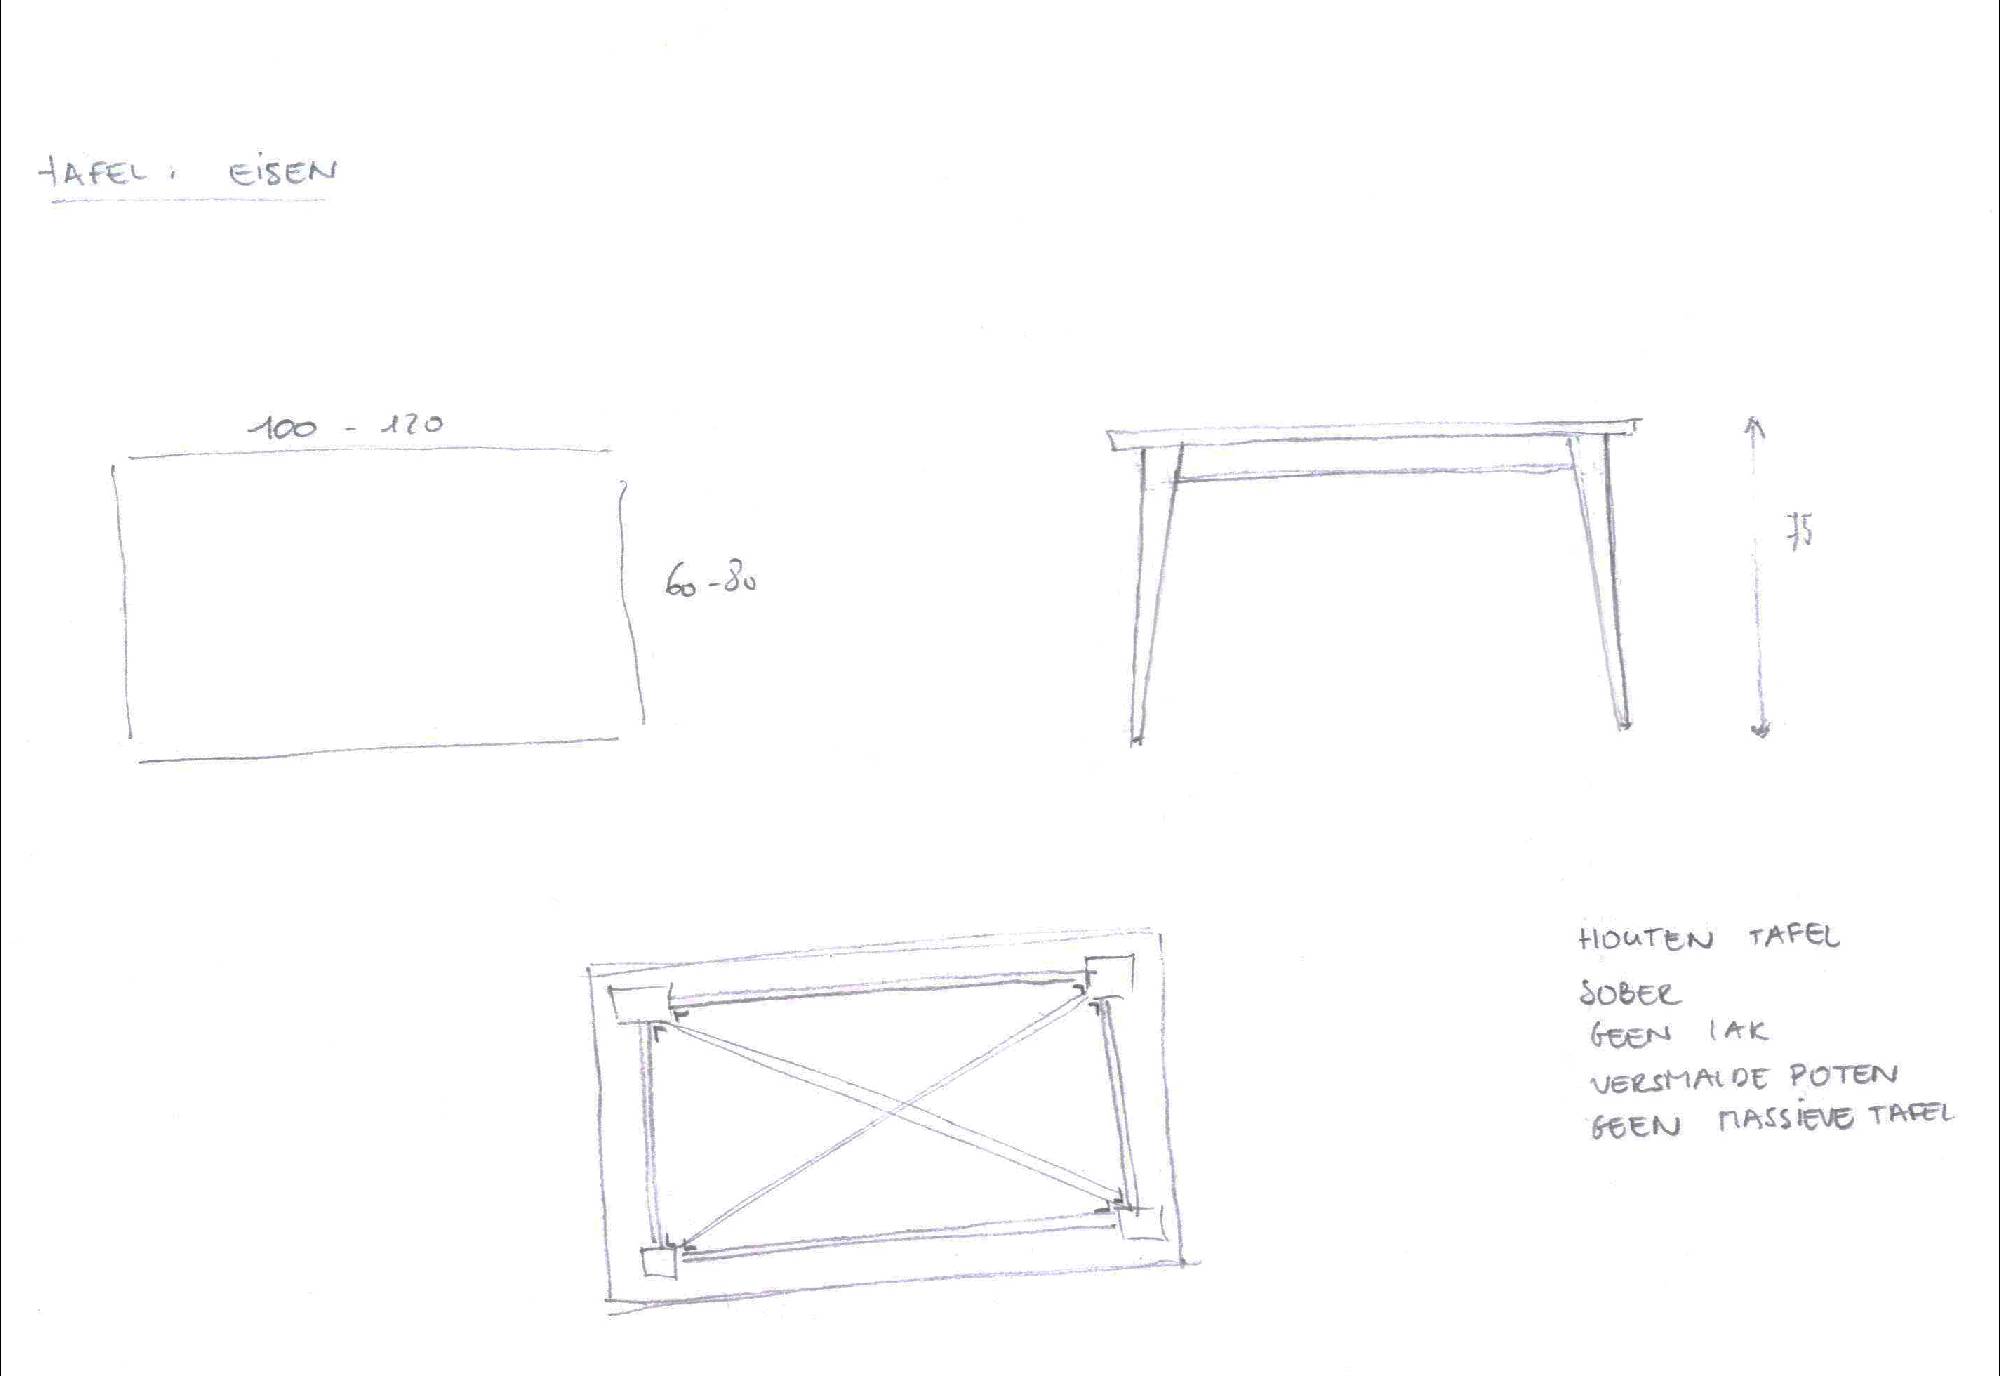 TAFEL: EISEN
100 - 120
60-80
75
HOUTEN TAFEL
SOBER
GEEN LAK
VERSMALDE POTEN
GEEN MASSIEVE TAFEL